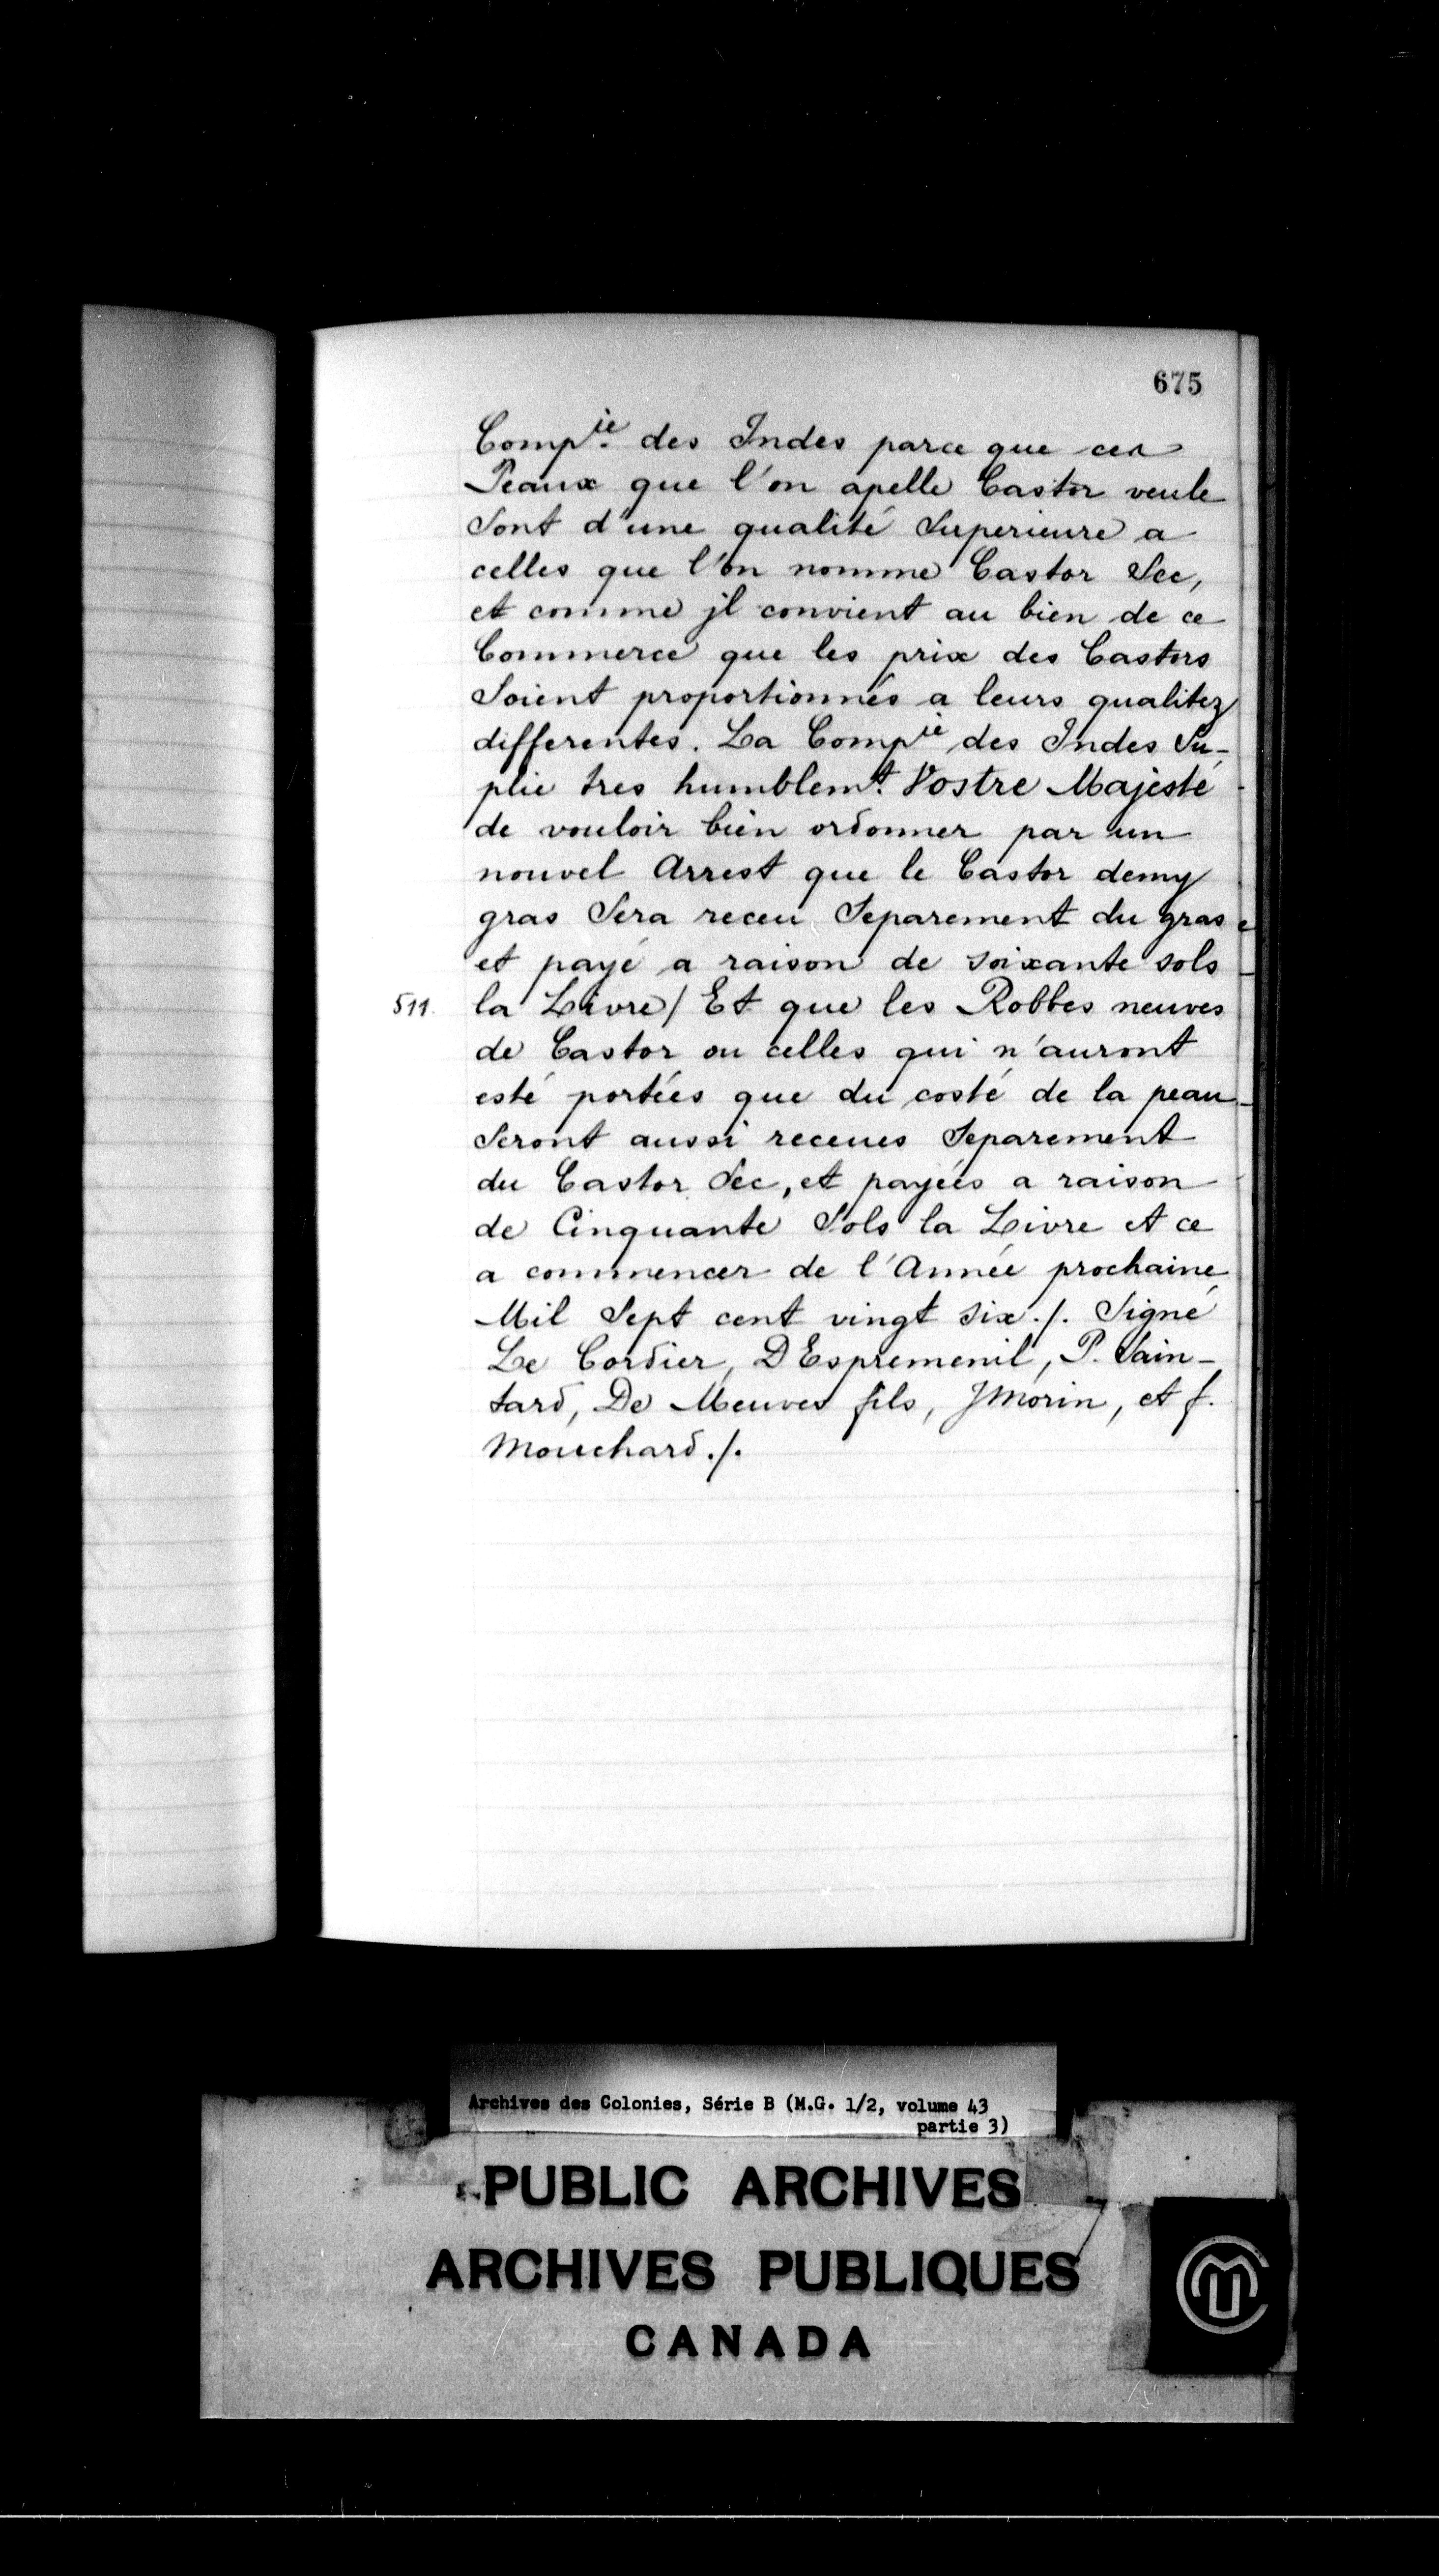 675
Comp.ie des Indes parce que ces
Peaux que l'on apelle Castor veule
Sont d'une qualité Superieure a
celles que l'on nomme Castor Sec,
et comme jl convient au bien de ce
Commerce que les prix des Castors
Soient proportionnés a leurs qualitez
differentes. La Compie des Indes Su-
plie tres humblem.t Vostre Majesté
de vouloir bien ordonner par un
nouvel Arrest que le Castor demy
gras Sera receu Separement du gras
et payé a raison de soixante sols
511. la Livre/ Et que les Robbes neuves
de Castor ou celles qui n'auront
esté portées que du costé de la peau
Seront aussi receues Separement
du Castor Sec, et payées a raison
de Cinquante Sols la Livre et ce
a commencer de l'Année prochaine
Mil Sept cent vingt six ./. Signé
Le Cordier, D Espremenil, P. Sain-
tard, De Meuves fils, JMorin, et f.
Mouchard ./.
Archives des Colonies, Série B (M.G. 1/2, volume 43
partie 3)
PUBLIC ARCHIVES
ARCHIVES PUBLIQUES
CANADA